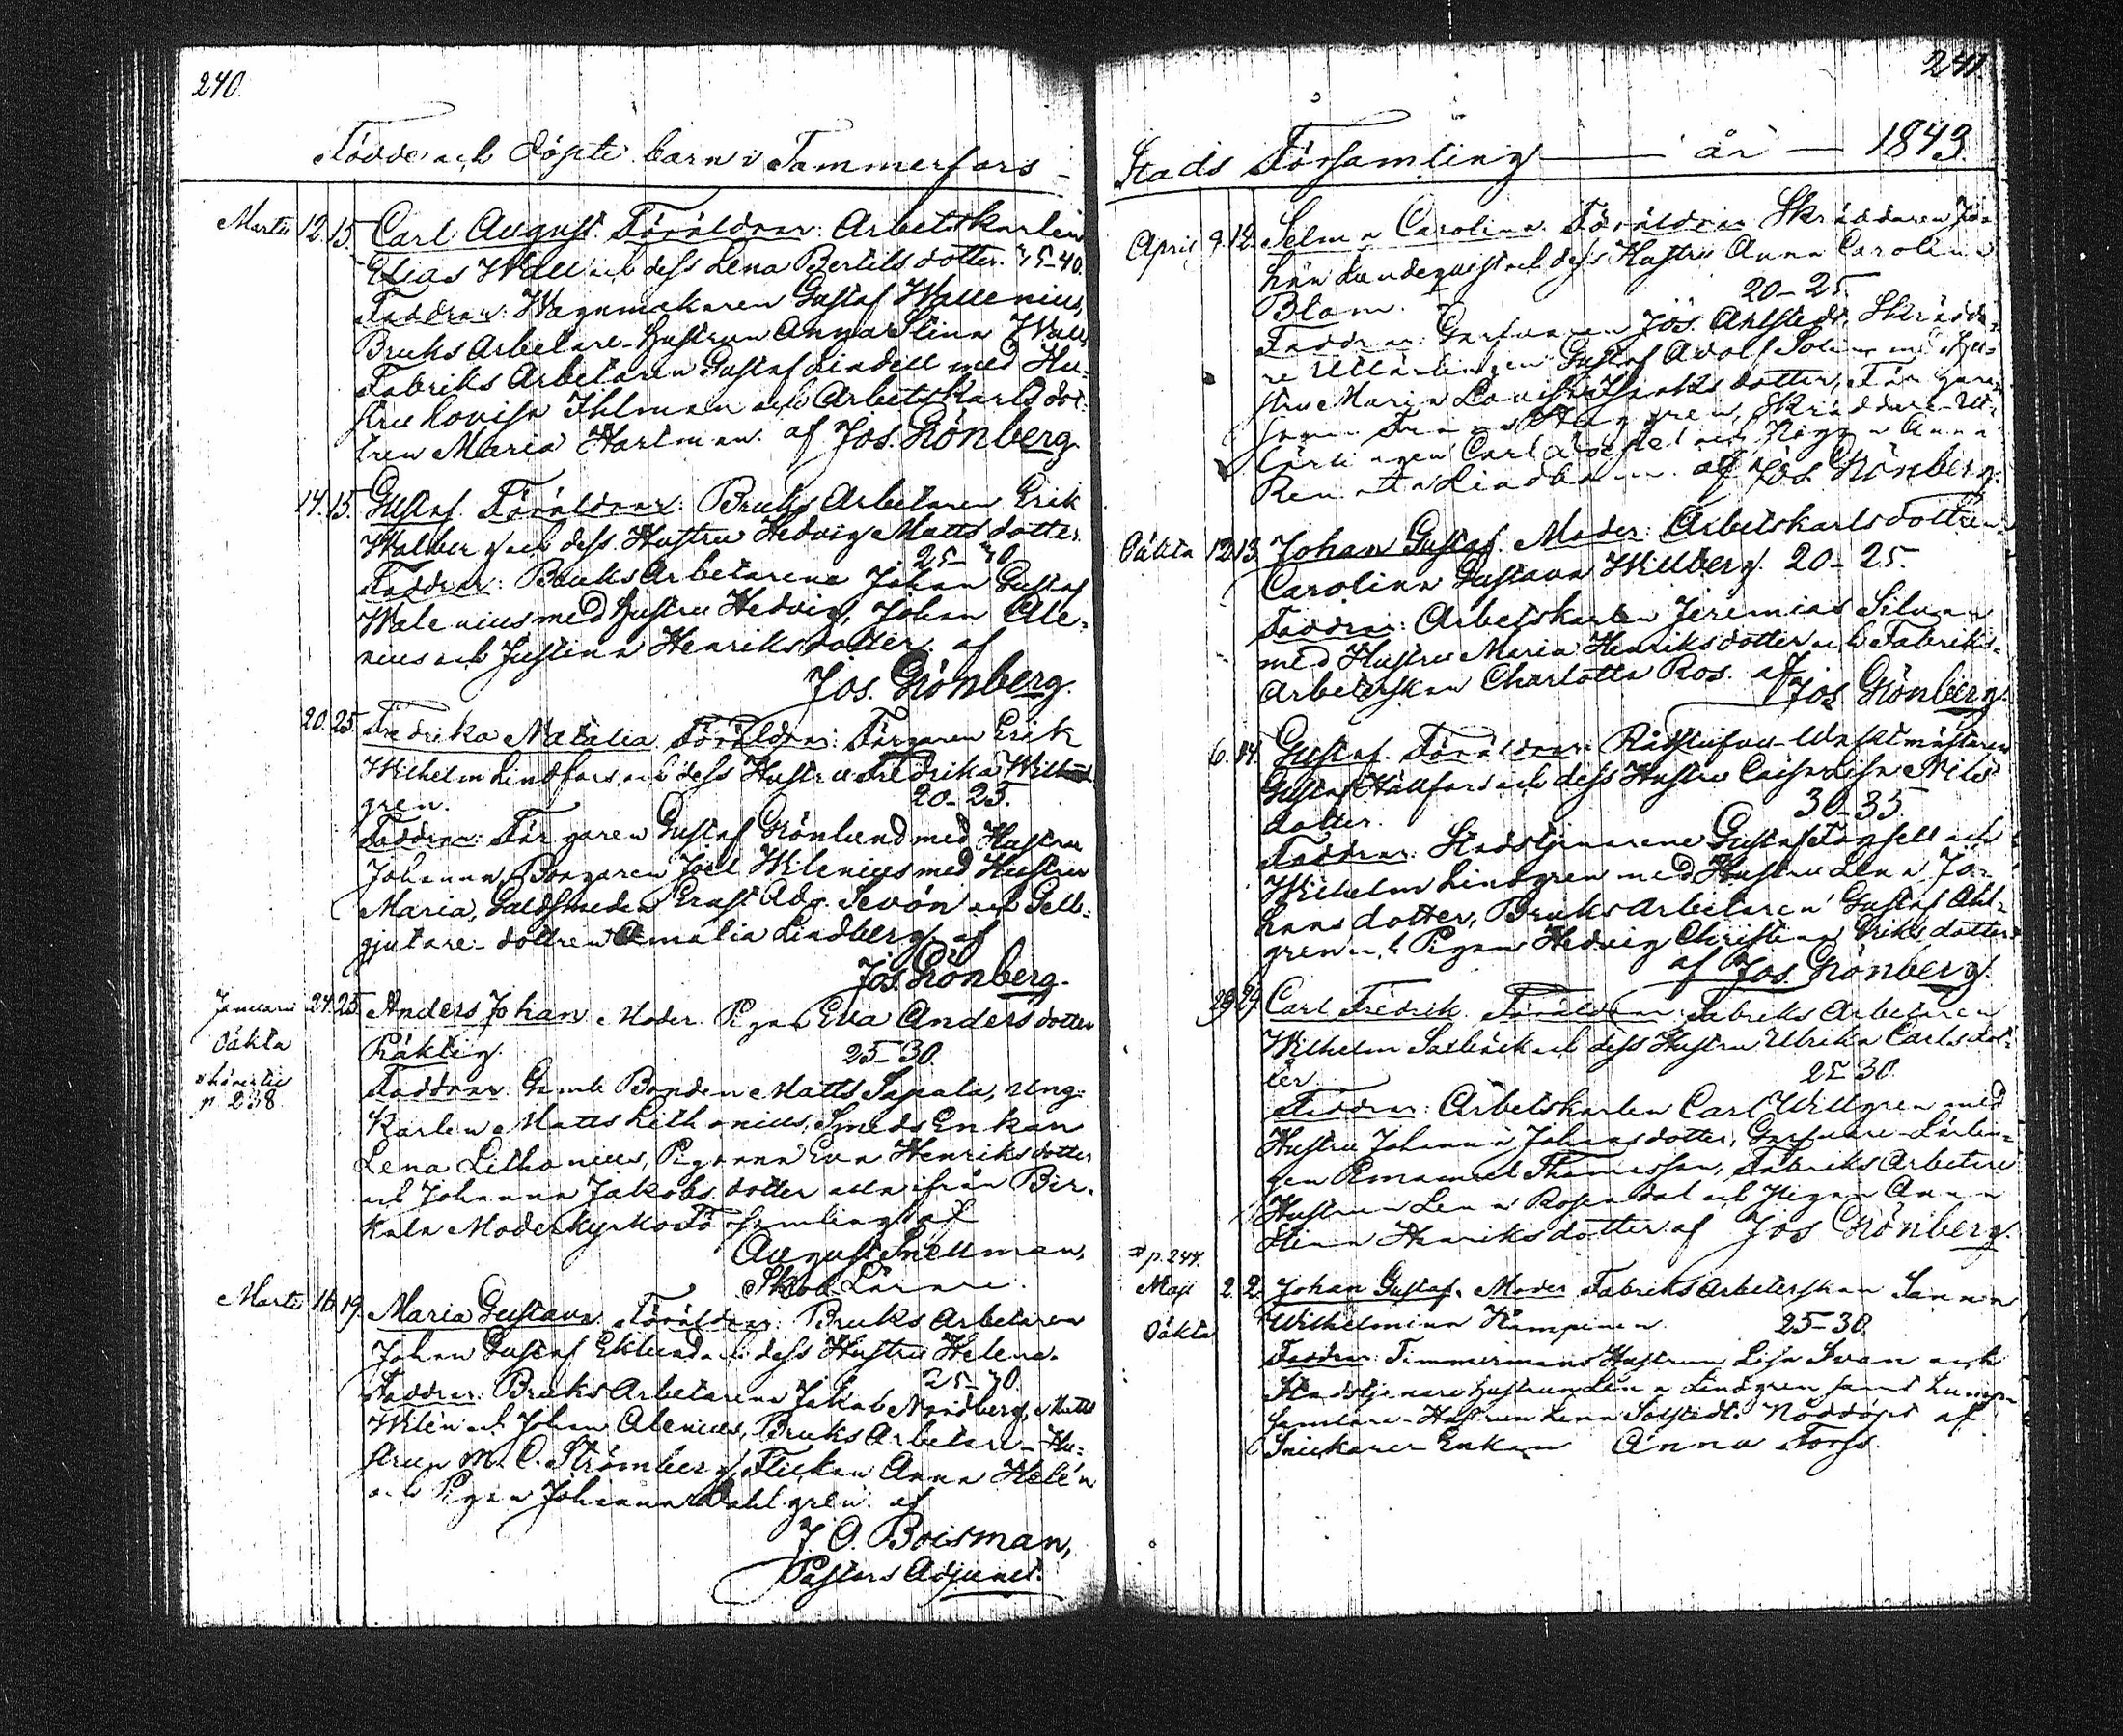 240.
Födde och döpte barn i Tammerfors
Martii 12. 15. Carl August. Föräldrar: Arbetskarlen
Elias Wall och dess Lena Bertils dotter. 35-40.
Faddrar: Wagnmakaren Gustaf Wallenius,
Bruks Arbetare-Hustrun Anna Stina Wall,
Fabriks Arbetaren Gustaf Lindell med Hu-
stru Lovisa Ihlman och Arbetskarls dot-
tren Maria Hartman. af Jos. Grönberg.
14. 15. Gustaf. Föräldrar: Bruks Arbetaren Erik
och dess Hustru Hedvig Matts dotter.
25-30.
Faddrar: Bruks Arbetarene Johan Gustaf
Walenius med Hustru Hedvig, Johan Ale-
nius och Justina Henriksdotter. af
Jos. Grönberg.
20. 25. Fredrika Natalia. Föräldrar: Färgaren Erik
Wilhelm Lindfors och dess Hustru Fredrika
gren. 20-25.
Faddrar: Färgaren Gustaf Grönlund med Hustru
Johanna, Borgaren Joel Wilenius med Hustru
Maria, Guldsmeden Ernst Adr. Sevón och Gelb-
gjutare-dottren Amalia Lindberg. af
Jos. Grönberg.
Januarii 24. 25. Anders Johan. Moder: Pigan Eva Anders dotter
Oäkta
Räktig. 25-30.
p. 238
Faddrar: Gamle Bonden Matts Sapala, Ung-
karlen Matts Lithonius, Smeds Enkan
Lena Lithonius, Pigorna Eva Henriksdotter
och Johanna Jakobs dotter alla ifrån Bir-
kala Moderkyrko Församling af
August Snellman,
Skol-Lärare.
Martii 16. 19. Maria Gustava. Föräldrar: Bruks Arbetaren
Johan Gustaf Eklund och dess Hustru Helena.
25-30.
Faddrar: Bruks Arbetarena Jakob Nordberg, Matts
Wilén och Johan Alenius, Bruks Arbetare-Hu-
strun M. C. Strömberg, Flickan Anna Helén
och Pigan Johanna Dahlgren. af
J. O. Boisman,
Pastors Adjunct.
241.
Stads Församling — år — 1843.
April 9. 12. Selma Carolina. Föräldrar: Skräddaren Jo-
han Lundeqvist och dess Hustru Anna Carolina
Blom. 20-25.
Faddrar: Garfvaren Jos. Ahlstedt, Skrädda-
re Utlärlingen Gustaf Adolf med Hu-
stru Maria Lovisa Isaks dotter,
Skräddare-Ut-
lärlingen Carl och Pigan Anna
Renata Lindbom. af Jos. Grönberg.
Oäkta 12. 13. Johan Gustaf. Moder: Arbetskarlsdottren
Carolina Gustava Willberg. 20-25.
Faddrar: Arbetskarlen Jeremias Silvan
med Hustru Maria Henriksdotter och Fabriks-
Arbeterskan Charlotta Ros. af
Jos. Grönberg.
6. 14. Gustaf. Föräldrar: Rådstufvu-Waktmästaren
Gustaf Hällfors och dess Hustru Caisa Lisa Nils
dotter. 30-35.
Faddrar: Stadstjenarene Gustaf och
Wilhelm Lindgren med Hustru Lena Jo-
hans dotter, Bruks Arbetaren Gustaf Ahl-
gren och Pigan Hedvig Christina Eriks dotter.
af Jos. Grönberg.
29. 29. Carl Fredrik. Föräldrar: Fabriks Arbetaren
Wilhelm och dess Hustru Ulrika Carlsdot-
ter. 25-30.
Faddrar: Arbetskarlen Carl Willgren med
Hustru Johanna Johansdotter, Garfvare-Lärlin-
gen Emanuel Thomasson, Fabriks Arbetare
Hustrun Lena Rosendal och Pigan Anna
Stina Henriksdotter. af Jos. Grönberg.
p. 244.
Maji 2. 2. Johan Gustaf. Moder: Fabriks Arbeterskan Sanna
Oäkta
Wilhelmina Kämpinen. 25-30.
Faddrar: Timmermans Hustrun Lisa Svan och
Stadstjenare Hustrun Lena Lindgren samt Lump-
samlare-Hustrun Lena Solstedt. Nöddöpt af
Snickare-Enkan Anna Forss.